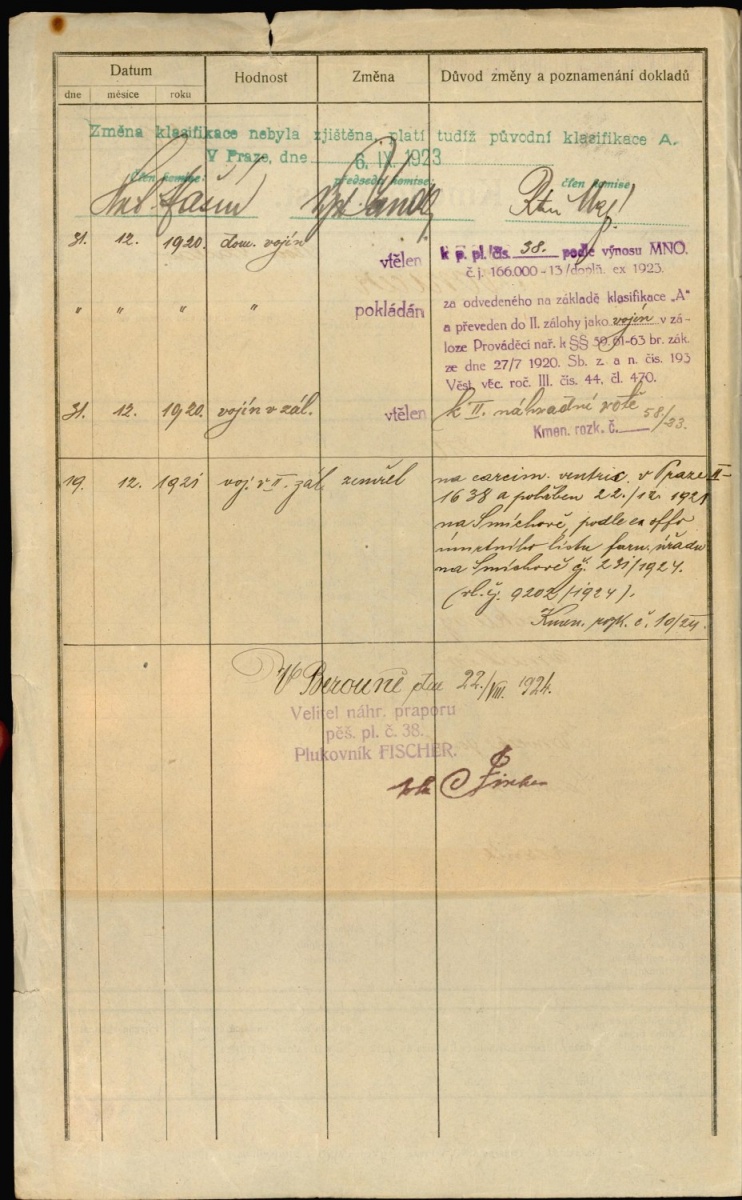 Datum
Hodnost
Změna
Důvod změny a poznamenání dokladů
dne měsíce roku
Změna klasifikace nebyla zjištěna, platí tudíž původní klasifikace A.
V Praze, dne 6. IX. 1923
člen komise: předseda komise: člen komise:
31. 12. 1920. dom. vojín vtělen k p. pl. čís. 38. podle výnosu MNO.
č. j. 166.000-13/doplň. ex 1923.
" " " " pokládán za odvedeného na základě klasifikace „A"
a převeden do II. zálohy jako vojín v zá-
loze Prováděcí nař. k §§ 59, 61-63 br. zák.
ze dne 27/7 1920. Sb. z. a n. čís. 193
Věst. věc. roč. III. čís. 44, čl. 470.
31. 12. 1920. vojín v zál. vtělen k II. náhradní rotě
Kmen. rozk. č. 58/23.
19. 12. 1921 voj. v II. zál. zemřel na carcim. ventric. v Praze II-
1638 a pohřben 22./12. 1921
na Smíchově, podle ex offo
úmrtního listu farn. úřadu
na Smíchově čj. 231/1924.
(čj. 9202/1924).
Kmen. rozk. č. 10/24.
V Berouně dne 22./VIII. 1924.
Velitel náhr. praporu
pěš. pl. č. 38.
Plukovník FISCHER.
Fischer